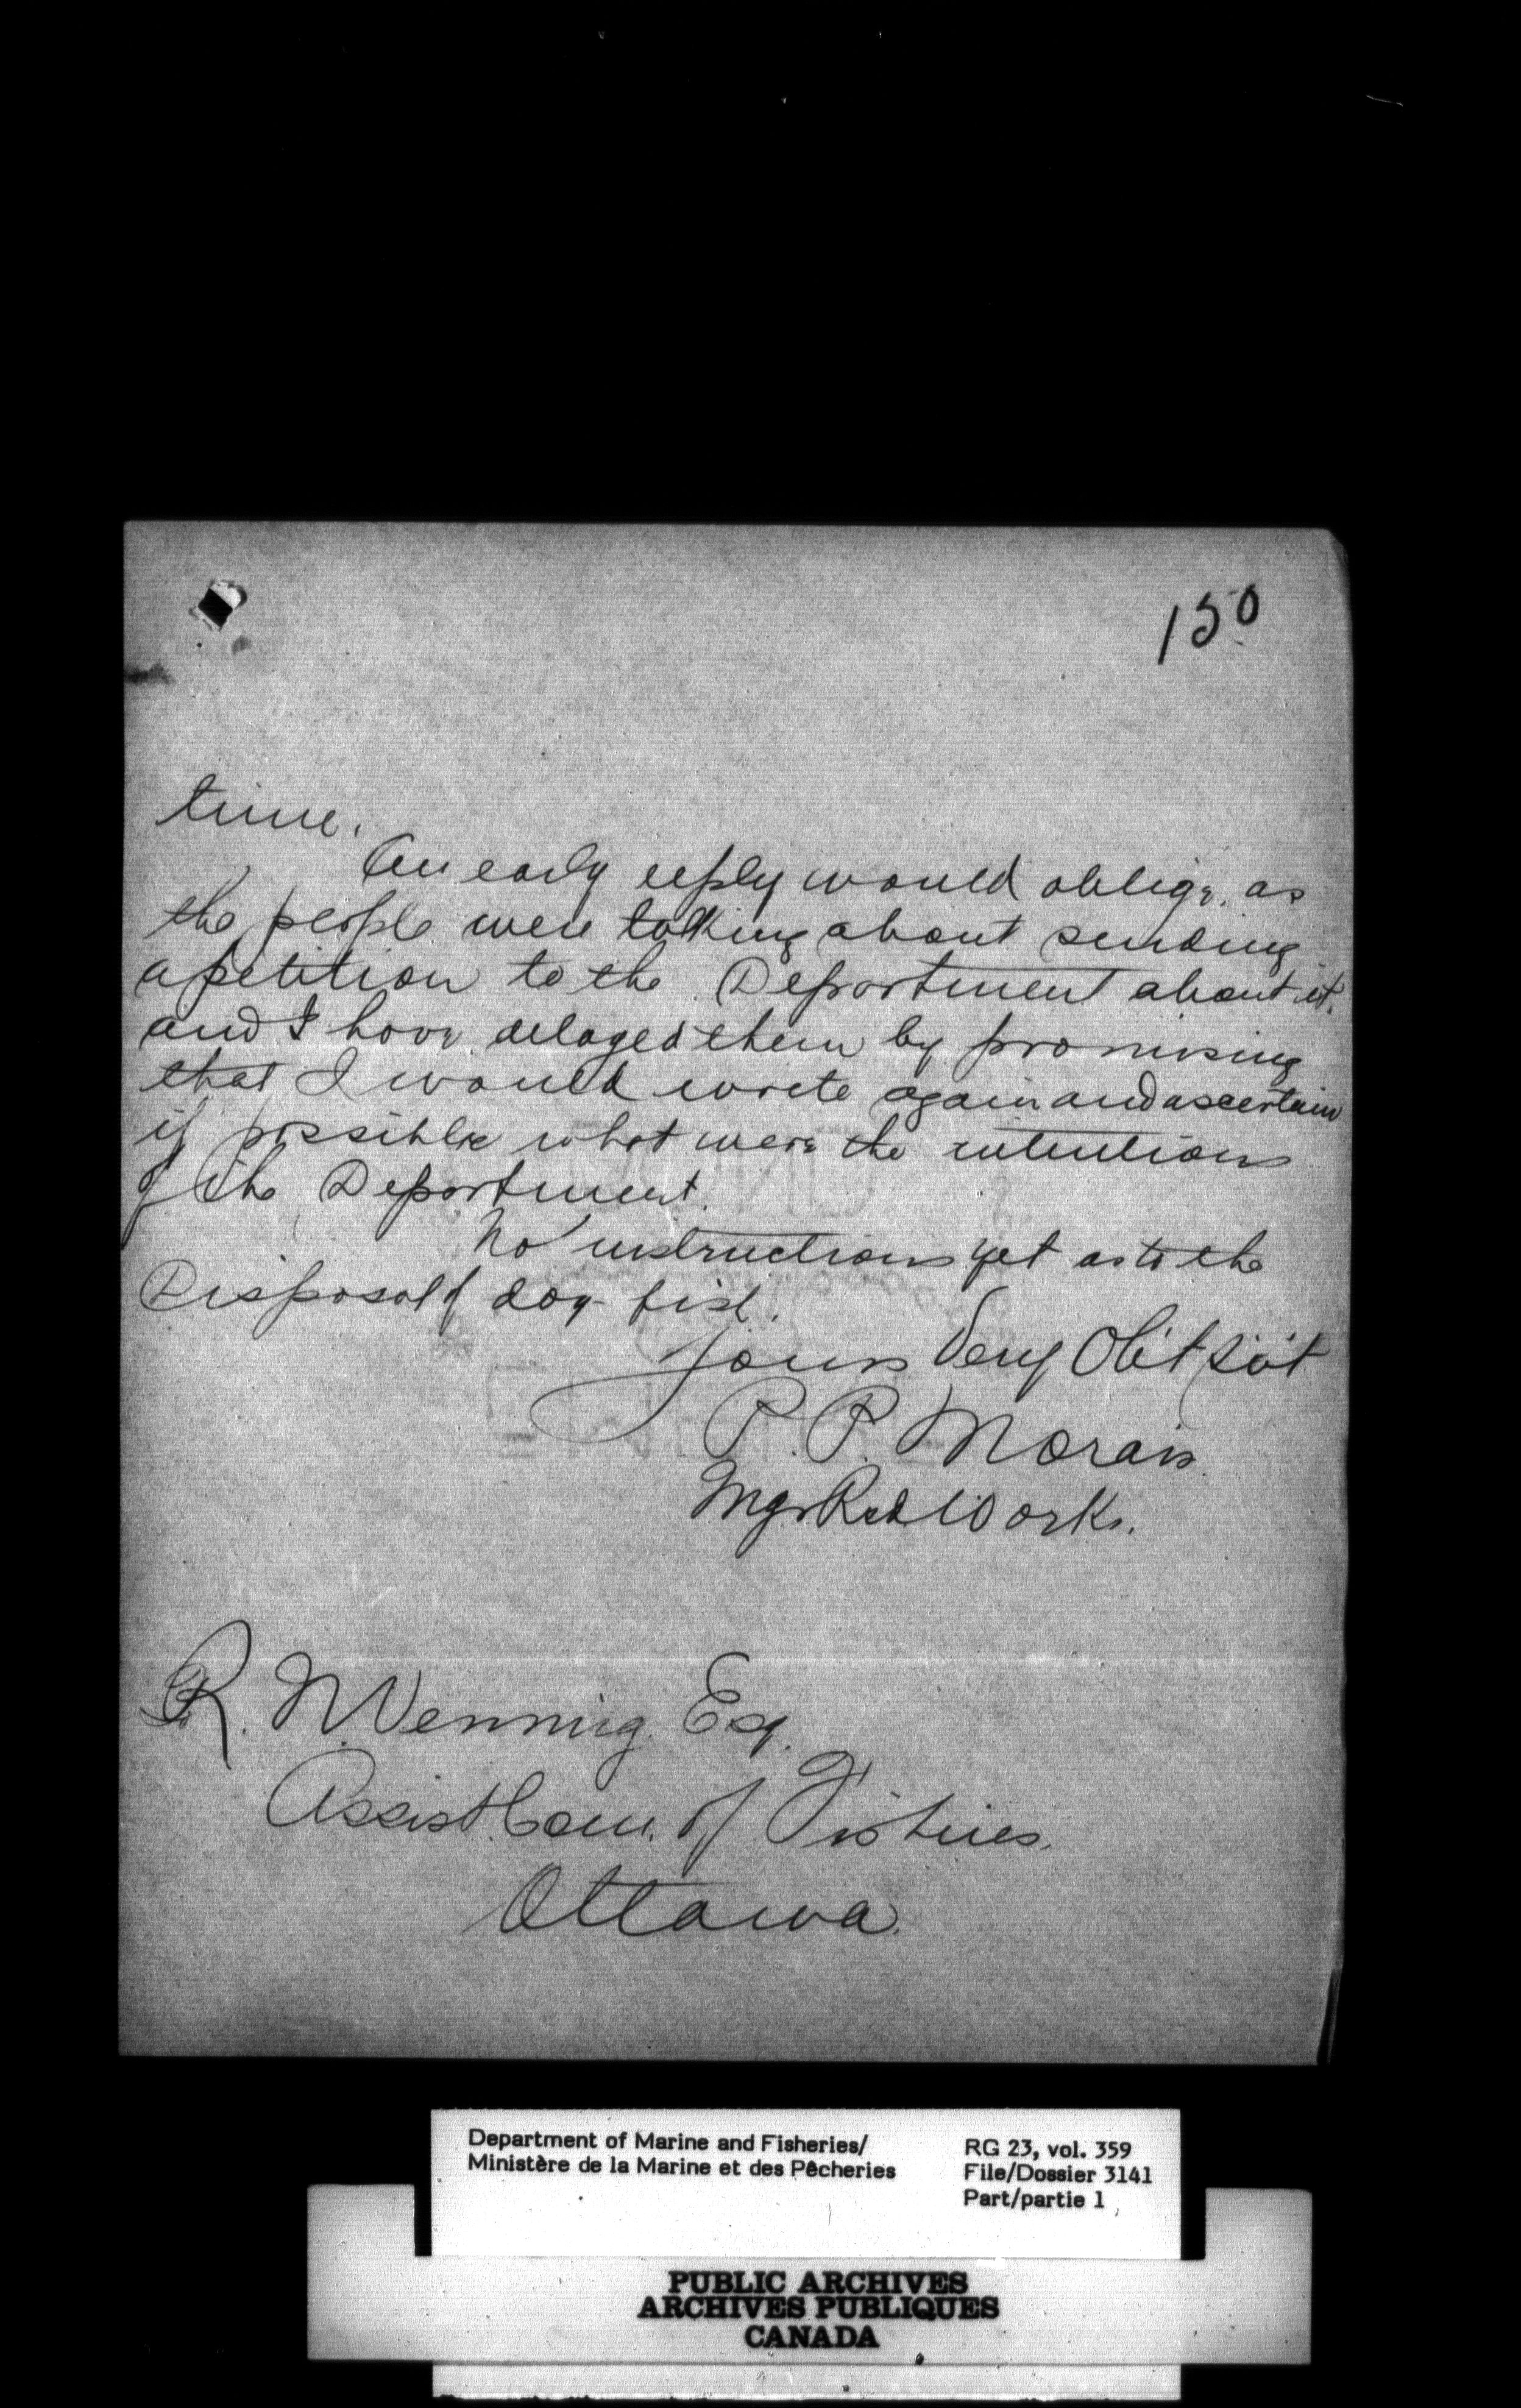 150
time.
An early reply would oblige, as
the people were talking about sending
a petition to the Department about it,
and I have delayed them by promising
that I would write again and ascertain
if possible what were the intentions
of the Department.
No instructions yet as to the
Disposal of dog-fish.
Yours Very Obt Svt
P. P. Morais
Mgr Red. Works.
R. N. Venning Esq.
Assist. Com. of Fisheries.
Ottawa.
Department of Marine and Fisheries/
Ministère de la Marine et des Pêcheries
RG 23, vol. 359
File/Dossier 3141
Part/partie 1
PUBLIC ARCHIVES
ARCHIVES PUBLIQUES
CANADA